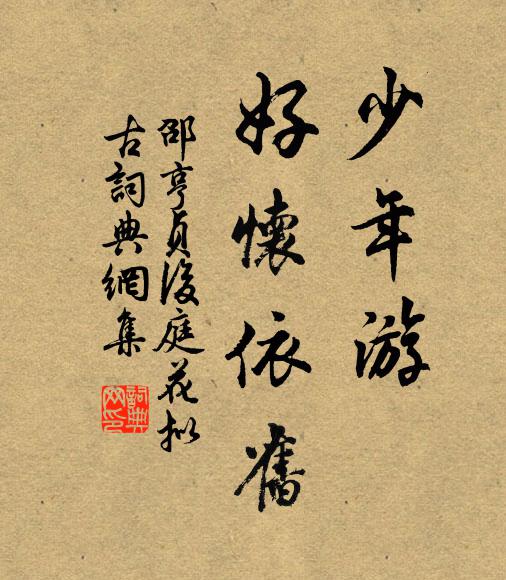 少年游
好懷依舊
邵亨貞後庭花拟
古詞典網集
詞典网印